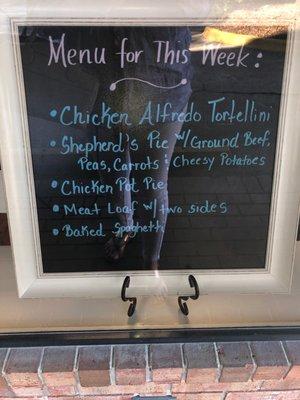 Menu for This Week:
• Chicken Alfredo Tortellini
• Shepherd's Pie w/Ground Beef,
Peas, Carrots & Cheesy Potatoes
• Chicken Pot Pie
• Meat Loaf w/ two sides
• Baked Spaghetti